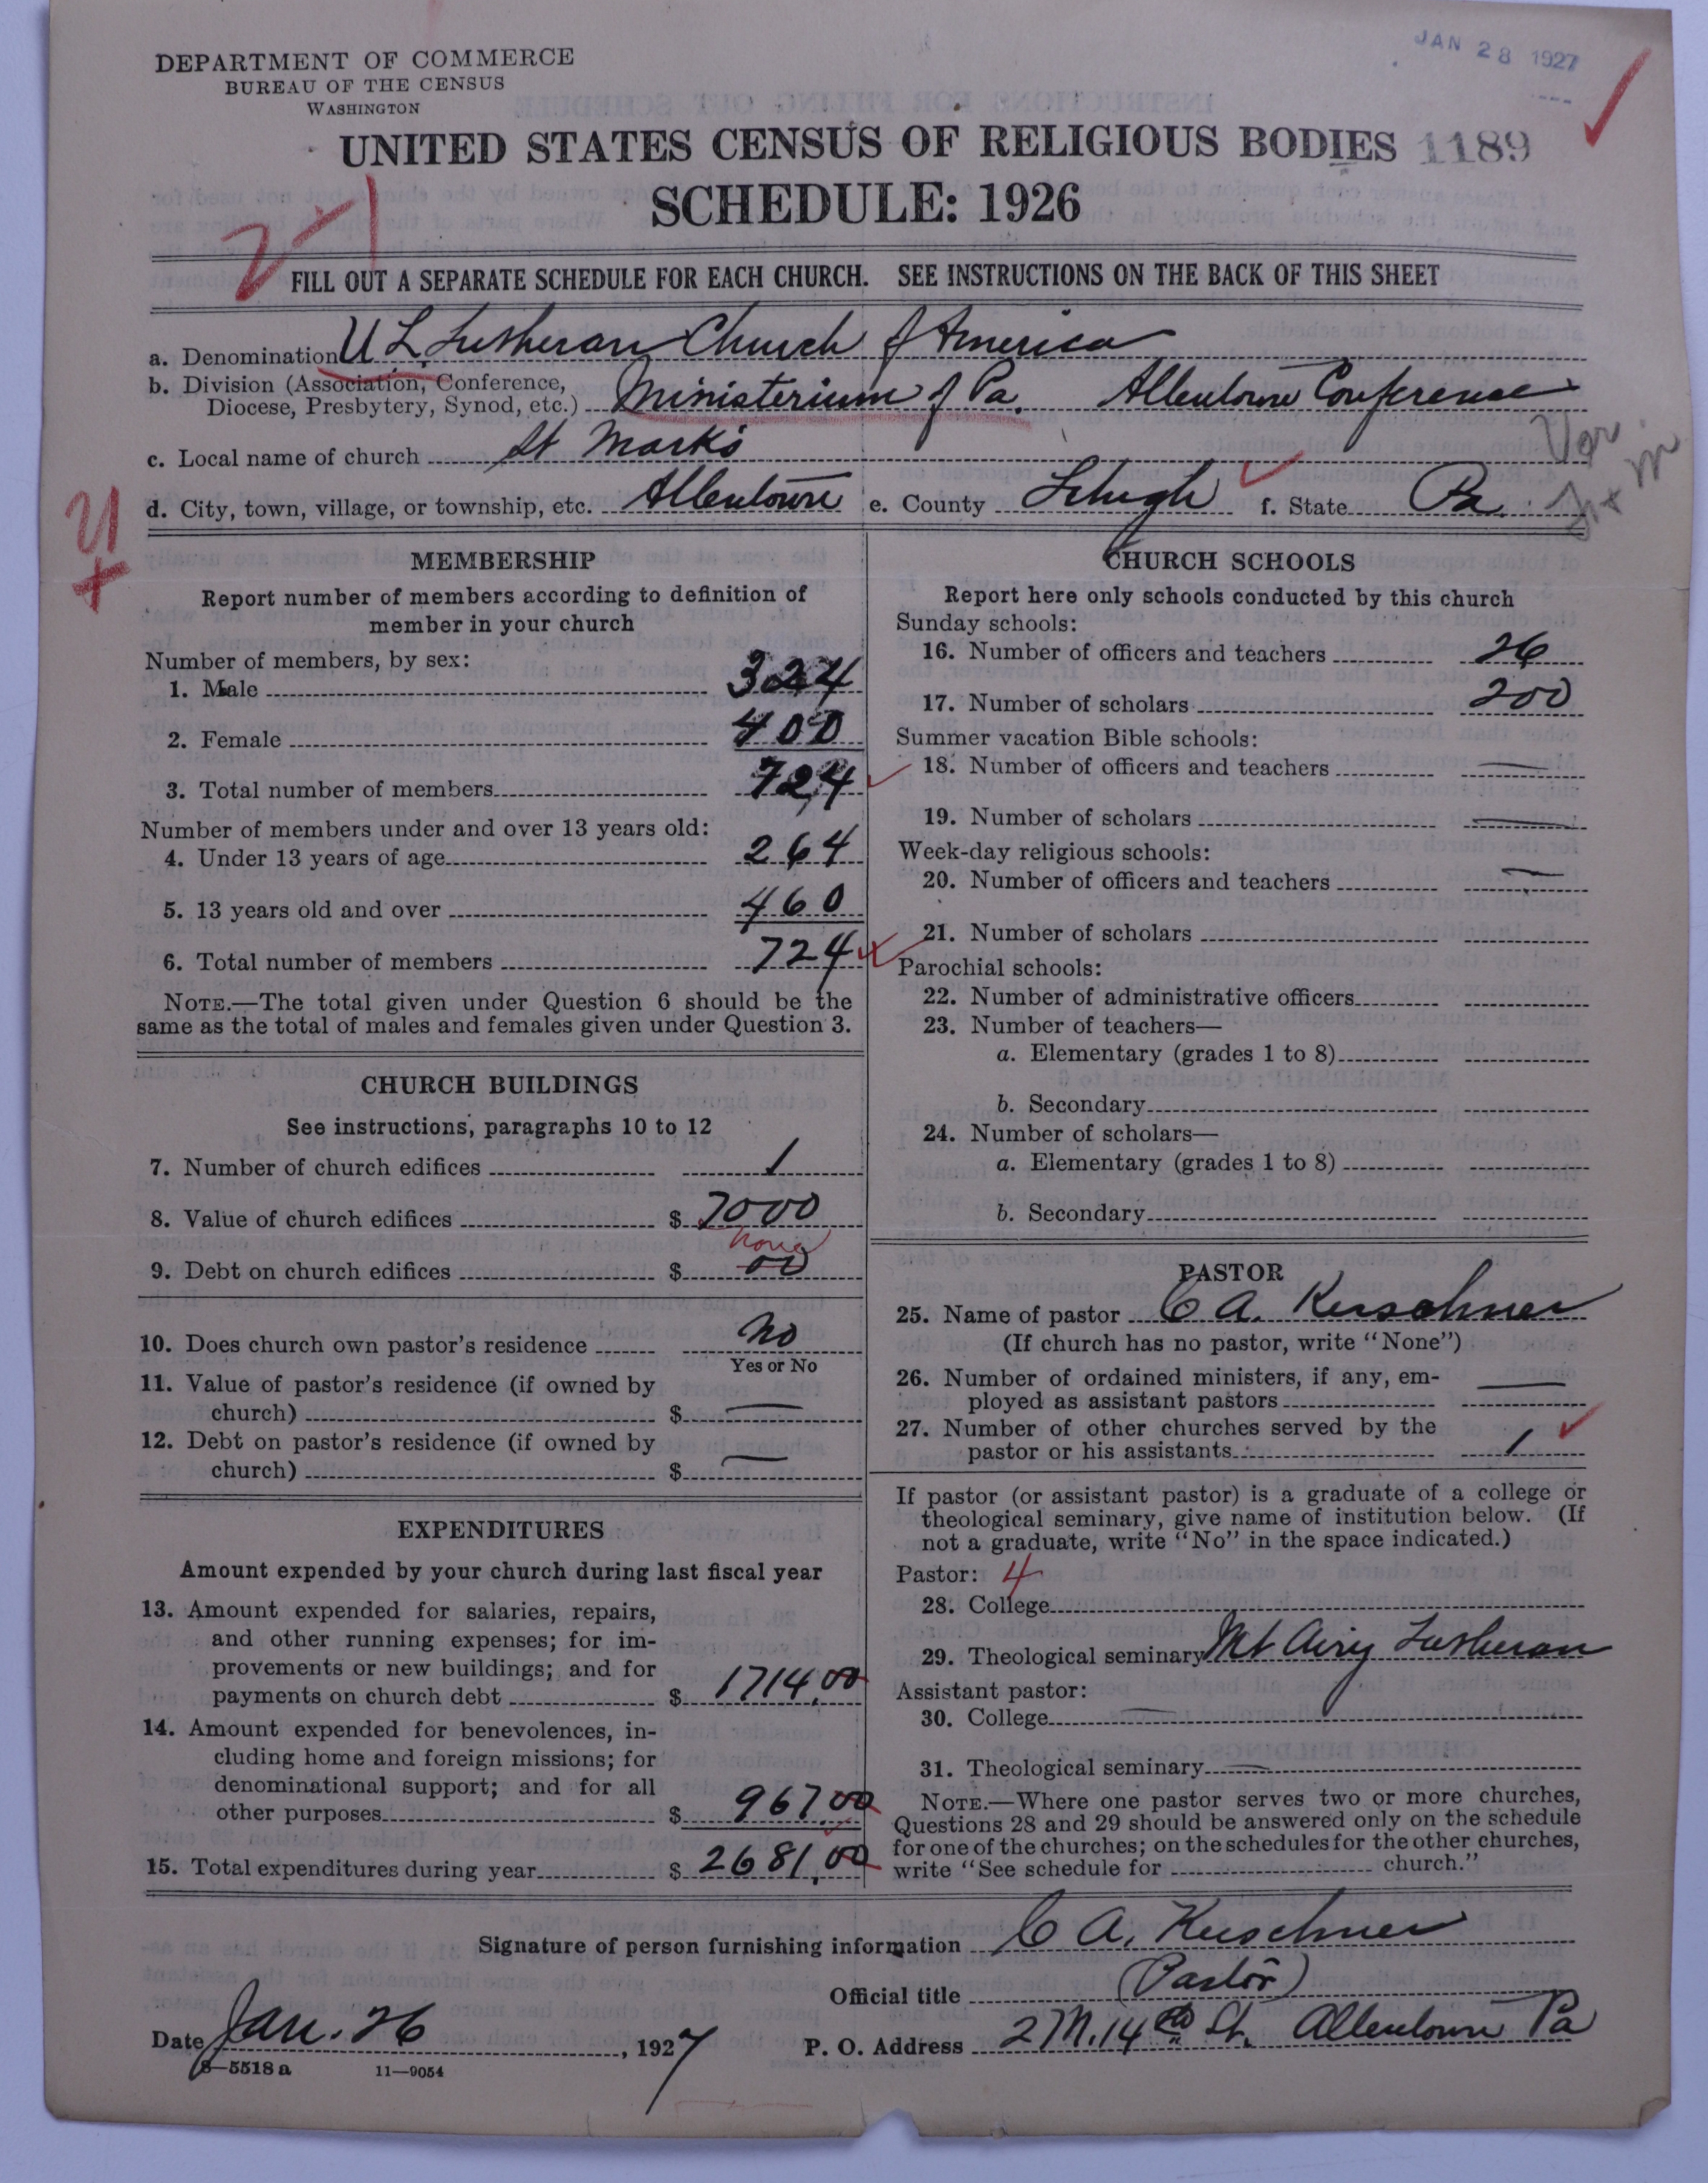 JAN 28 1927
DEPARTMENT OF COMMERCE
BUREAU OF THE CENSUS
WASHINGTON
UNITED STATES CENSUS OF RELIGIOUS BODIES 1189
SCHEDULE: 1926
FILL OUT A SEPARATE SCHEDULE FOR EACH CHURCH. SEE INSTRUCTIONS ON THE BACK OF THIS SHEET
a. Denomination U L Lutheran Church of America
b. Division (Association, Conference,
Diocese, Presbytery, Synod, etc.) Ministerium of Pa. Allentown Conference
c. Local name of church St Mark's
d. City, town, village, or township, etc. Allentown e. County Lehigh f. State Pa.
MEMBERSHIP
Report number of members according to definition of
member in your church
Number of members, by sex:
1. Male 324
2. Female 400
3. Total number of members 724
Number of members under and over 13 years old:
4. Under 13 years of age 264
5. 13 years old and over 460
6. Total number of members 724
NOTE.—The total given under Question 6 should be the
same as the total of males and females given under Question 3.
CHURCH BUILDINGS
See instructions, paragraphs 10 to 12
7. Number of church edifices 1
8. Value of church edifices $ 7000
none
9. Debt on church edifices $ 00
10. Does church own pastor's residence no
Yes or No
11. Value of pastor's residence (if owned by
church) $ —
12. Debt on pastor's residence (if owned by
church) $ —
EXPENDITURES
Amount expended by your church during last fiscal year
13. Amount expended for salaries, repairs,
and other running expenses; for im-
provements or new buildings; and for
payments on church debt $ 1714.00
14. Amount expended for benevolences, in-
cluding home and foreign missions; for
denominational support; and for all
other purposes $ 967.00
15. Total expenditures during year $ 2681.00
CHURCH SCHOOLS
Report here only schools conducted by this church
Sunday schools:
16. Number of officers and teachers 26
17. Number of scholars 200
Summer vacation Bible schools:
18. Number of officers and teachers —
19. Number of scholars —
Week-day religious schools:
20. Number of officers and teachers —
21. Number of scholars
Parochial schools:
22. Number of administrative officers
23. Number of teachers—
a. Elementary (grades 1 to 8)
b. Secondary
24. Number of scholars—
a. Elementary (grades 1 to 8)
b. Secondary
PASTOR
25. Name of pastor C A. Kerschner
(If church has no pastor, write "None")
26. Number of ordained ministers, if any, em-
ployed as assistant pastors —
27. Number of other churches served by the
pastor or his assistants 1
If pastor (or assistant pastor) is a graduate of a college or
theological seminary, give name of institution below. (If
not a graduate, write "No" in the space indicated.)
Pastor: 4
28. College
29. Theological seminary Mt Airy Lutheran
Assistant pastor:
30. College —
31. Theological seminary —
NOTE.—Where one pastor serves two or more churches,
Questions 28 and 29 should be answered only on the schedule
for one of the churches; on the schedules for the other churches,
write "See schedule for church."
Signature of person furnishing information C A. Kerschner
Official title (Pastor)
Date Jan. 26, 1927 P. O. Address 2 N. 14th St. Allentown Pa
8—5518 a 11—9054